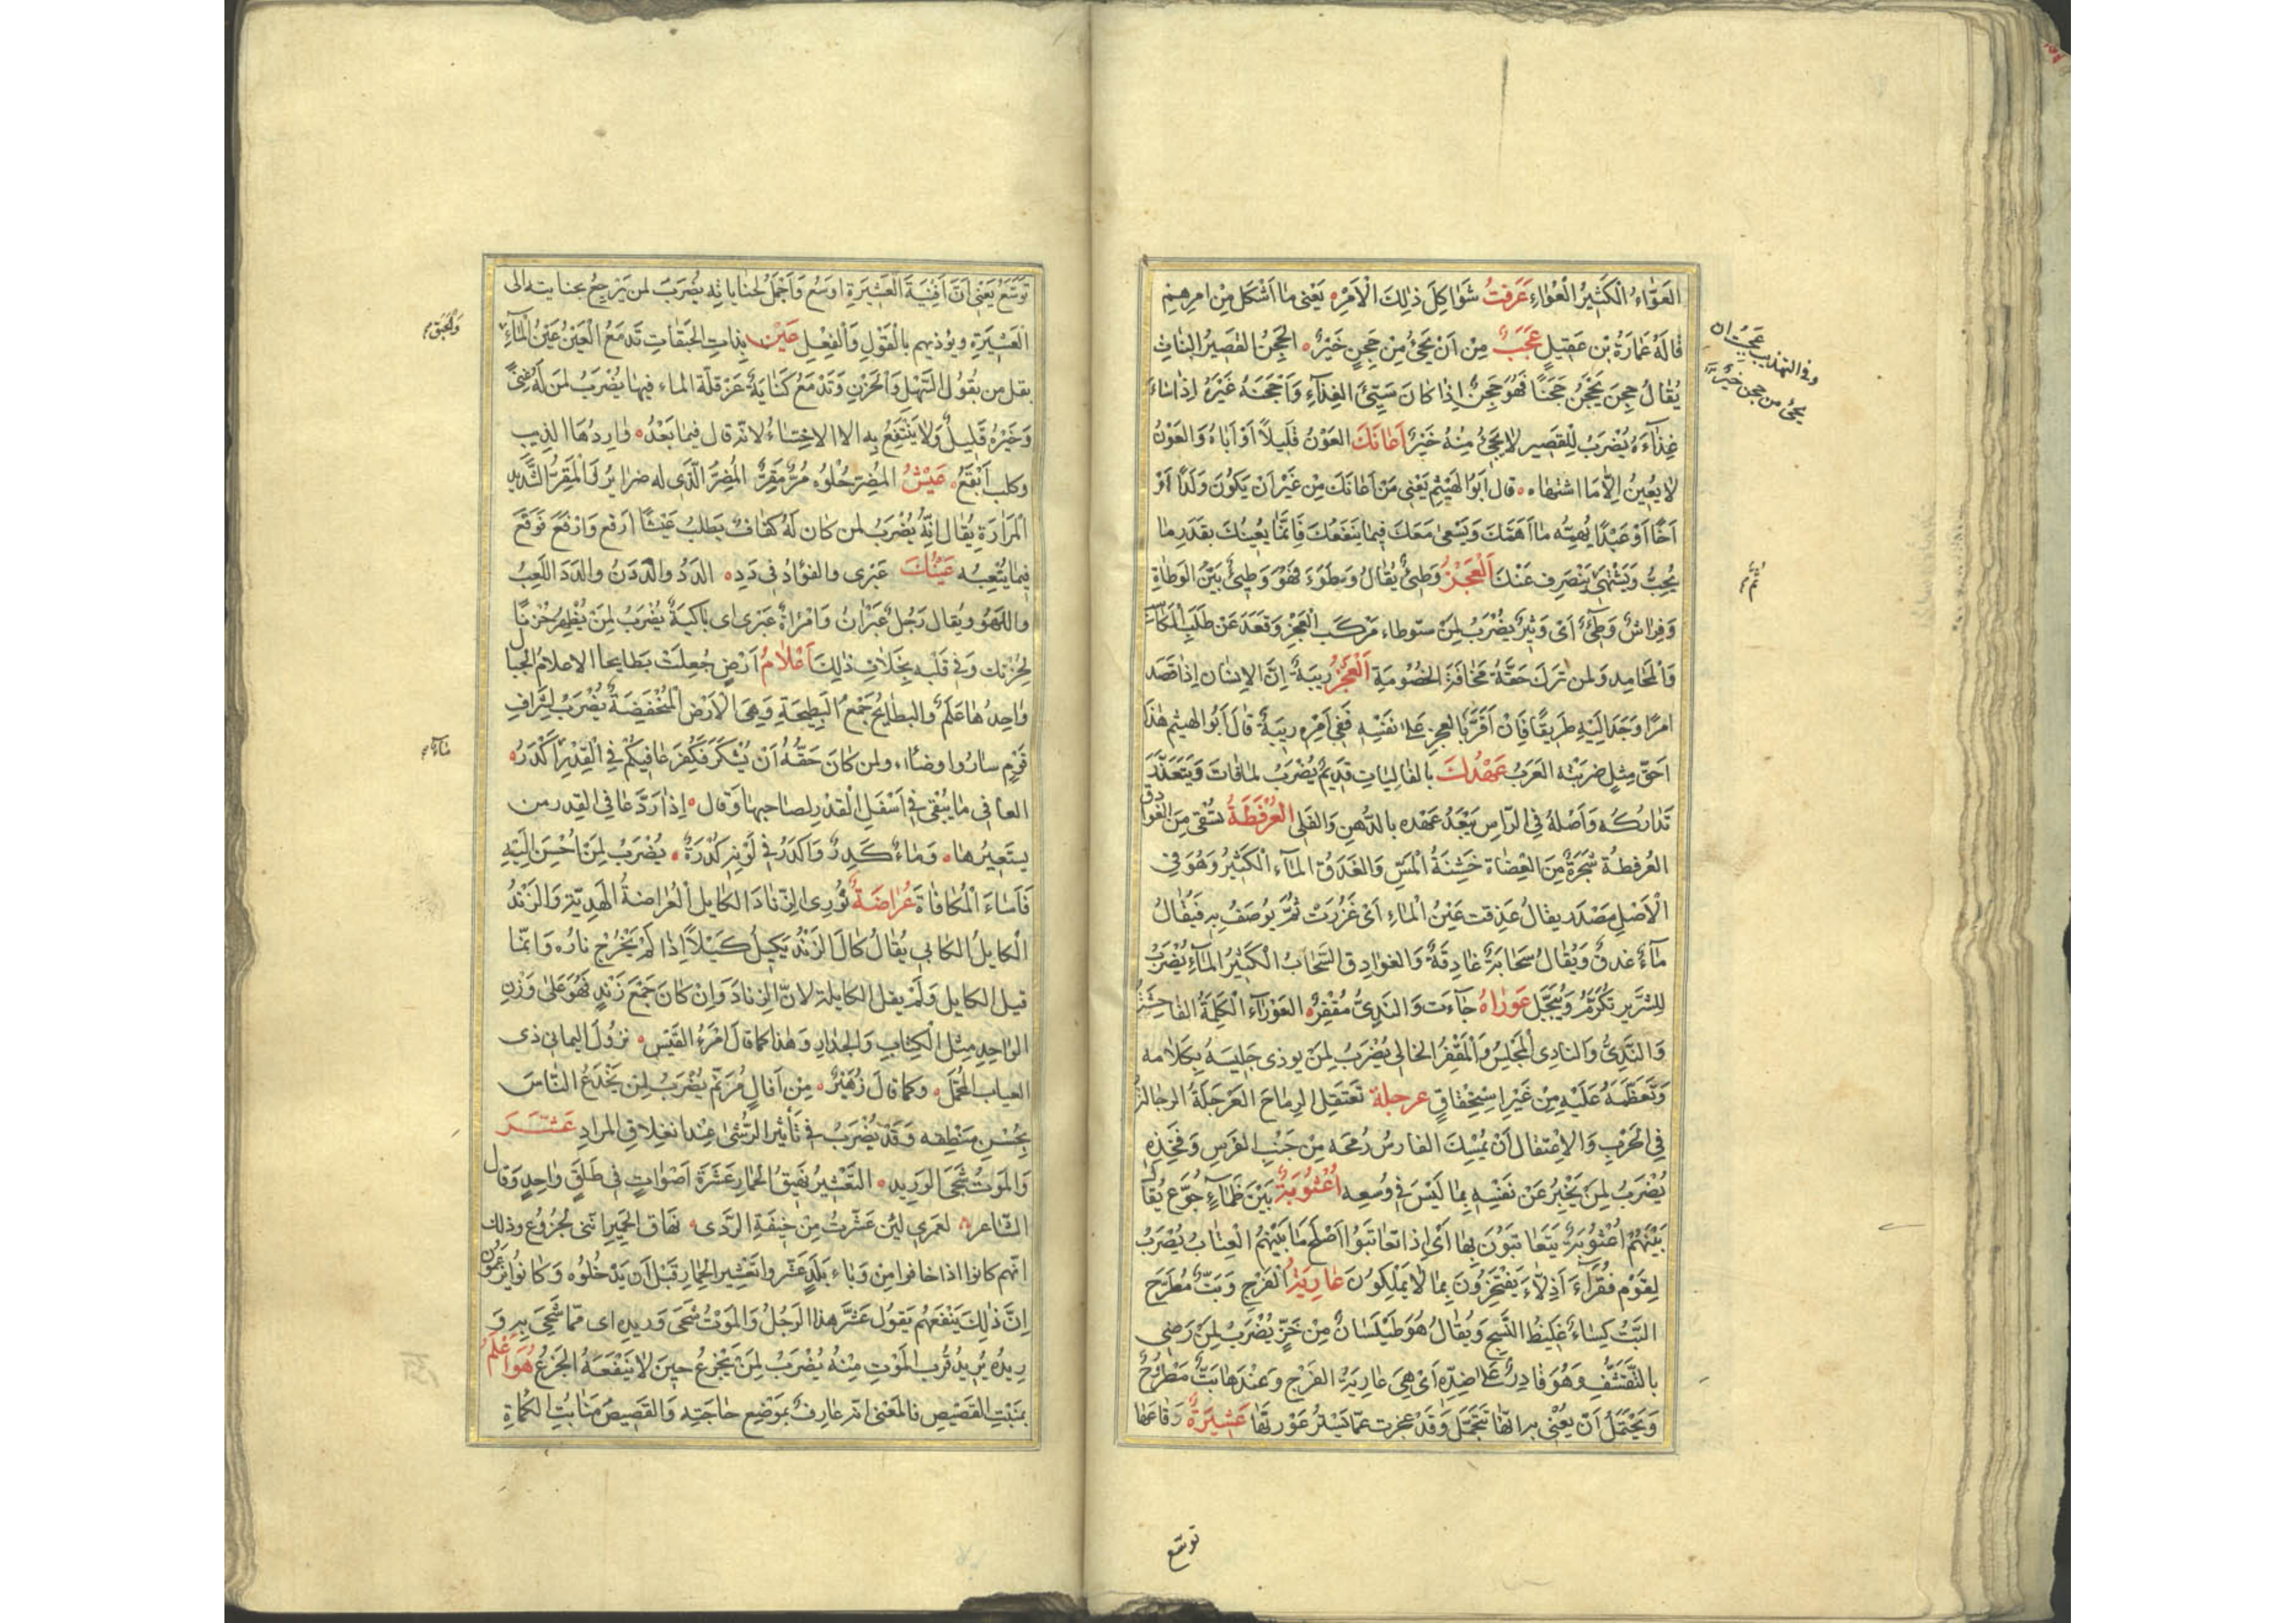 العَوَّاءُ الْكَثِيرُ الْعُوَاءِ عَرَفْتُ شَوَاكِلَ ذٰلِكَ الْاَمْرِ يَعْنِى مَا اَشْكَلَ مِنْ اَمْرِهِمْ
قَالَهُ عُمَارَةُ بْنِ عَقِيلٍ عَجَبٌ مِنْ اَنْ يَجِىُٔ مِنْ جَحِنٍ خَيْرٌ الجَحِنُ القَصِيرُ النَبَاتِ
وفى التهذيب عَجِبْتُ ان
يجئ من جحن خيرٌ
يُقَالُ جَحِنَ يَجْحَنُ جَحَنًا فَهُوَ جَحِنٌ اِذَا كَانَ سَيِّئَ الغِذَآءِ وَاَجْحَنَهُ غَيْرُهُ اِذَا اَسَاءَ
غِذَآءَهُ يُضْرَبُ لِلْقَصِيرِ لَا يَجِئُ مِنْهُ خَيْرٌ اَعَانَكَ العَوْنُ قَلِيلًا اَوْ اَبَاهُ وَالعَوْنُ
لَا يُعِينُ اِلَّا مَا اشتهاه قال اَبُو الهَيْثَمِ يَعْنِى مَنْ اَعَانَكَ مِنْ غَيْرِ اَنْ يَكُونَ وَلَدًا اَوْ
اَخًا اَوْ عَبْدًا يُهِمُّه مَا اَهَمَّكَ وَيَسْعٰى مَعَكَ فِيمَا يَنْفَعُكَ فَاِنَّمَا يُعِينُكَ بِقَدَرِ مَا
يُحِبُّ وَيَشْتَهِى ثم يَنْصَرِف عَنْكَ اَلْعَجْزُ وَطِئٌ يُقَالُ وَطُوءَ فَهُوَ وَطِئٌ بَيِّنُ الوَطَاءَةِ
وَفِرَاشٌ وَطِئٌ اَىْ وَثِيرٌ يُضْرَبُ لِمَنْ استوطاء مَرْكَبَ العَجْزِ وَقَعَدَ عَنْ طَلَبِ المَكَاسِبِ
وَالْمَحَامِدِ وَلِمَن تَرَكَ حَقَّهُ مَخَافَةَ الخُصُومَةِ اَلْعَجْزُ رِيبَةٌ اِنَّ الاِنْسَانَ اِذَا قَصَدَ
اَمْرًا وَجَدَ اِلَيْهِ طَرِيقًا فَاِنْ اَقَرَّ بِالعجزِ عَلٰى نَفْسِهِ فَفِى اَمْرِه رِيبَةٌ قَالَ اَبُو الهيثم هٰذَا
اَحَقُّ مِثْلٍ ضَرَبَتْه العَرَبُ عَهْدُكَ بالفَالِيَاتِ قَدِيمٌ يُضْرَبُ لِمَا فَاتَ وَيَتَعَذَّرُ
تَدَارُكُه وَاَصْلهُ فِى الرّاسِ يَبْعُدُ عَهْدُه بالدُّهْنِ وَالفَلْى العُرْفُطَةُ تُسْقٰى مِنَ الغَوَادِقِ
العُرفطةُ شَجَرَةٌ مِنَ العِضَاهِ خَشِنَةُ الْمَسِّ وَالغَدَقُ المَاء الْكَثِيرُ وَهُوَ فى
الْاَصْلِ مَصْدَر يقالُ غَدِقت عَيْنُ الْمَاءِ اَىْ غَزُرَتْ ثُمَّ يُوصَفُ بِهِ فَيُقَالُ
مَآءٌ غَدَقٌ وَيُقَالُ سَحَابَةٌ غَادِقَةٌ وَالغَوَادِق السَّحَابُ الْكَثِيرُ المَآءِ يُضْرَبُ
لِلشَّرِيرِ يُكْرَمُ وَيُبَجَّلُ عَوْرَاهُ جَآءَت وَالنَدِىُّ مُقْفِرٌ العَوْرَآءُ الكَلِمَةُ الفَاحِشَةُ
وَالنَدِىُّ وَالنادِى الْمَجْلِسُ وَالْمُقْفِرُ الخالى يُضْرَبُ لِمَنْ يوذى جَلِيسَهُ بِكَلَامه
وَتَعَظُّمِهِ عَلَيْهِ مِنْ غَيْرِ اسْتِحْقَاقٍ عرجلة تَعْتَقِلُ الرِمَاحَ العَرْجَلَةُ الرجالة
فِى الْحَرْبِ وَالاِعْتِقَال اَنْ يُمْسِكَ الفَارِسُ رُمْحَه مِنْ جَنْبِ الفَرَسِ وَفَخِذِهِ
يُضْرَبُ لِمَنْ يُخْبِرُ عَنْ نَفْسِهِ بِمَا لَيْسَ فِى وُسْعِه اُعْتُوبَةٌ بَيْنَ ظِمَاءٍ جُوَّعٍ يُقَال
بَيْنَهُمْ اُعْتُوبَةٌ يَتَعَاتَبُونَ بِهَا اَىْ اِذَا تَعَاتَبُوا اَصْلَحَ مَا بَيْنَهُمُ الْعِتَابُ يُضْرَبُ
لِقَوْمٍ فُقَرَآءَ اَذِلَّاءَ يَفْتَخِرُونَ بِمَا لَا يَمْلِكُونَ عَارِيَةُ الْفَرْجِ وَبَتٌّ مُطَرَّحٌ
البَتُّ كِسَاءٌ غَلِيظُ النَّسْجِ وَيُقَالُ هُوَ طَيْلَسَانٌ مِنْ خَزٍّ يُضْرَبُ لِمَنْ رَضِىَ
بالتَّقَشُّفِ وَهُوَ قَادِرٌ عَلٰى ضِدِّهِ اَىْ هِىَ عَارِيَةُ الفَرْجِ وَعِنْدَهَا بَتٌّ مَطْرُوحٌ
وَيَحْتَمِلُ اَنْ يُعْنٰى به انَّهَا تَتَجَمَّلُ وَقَدْ عجزت عَمَّا يَسْتُرُ عَوْرَتَهَا عَشِيرَةٌ رفاعها
توسّع
تَوَسَّعُ يَعْنِى اَنَّ اَفْنِيَةَ الْعَشِيرَةِ اوسَعُ وَاَحْمَلُ لجنَايَاتِهِ يُضْرَبُ لمن يَرْجِعُ بجنايته الى
الْعَشِيرَةِ ويؤذيهم بالْقَوْلِ وَالْفِعْلِ عَيْنٌ بِذاتِ الحَبَقَاتِ تَدْمَعُ الْعَيْنُ عَيْنُ الْمَآءِ
وَالْحَبَقُ
بقل من بُقُولِ السَّهْلِ وَالْحَزْنِ وَتَدْمَعُ كَنَايَةٌ عَنْ قلّةِ الماء فِيهَا يُضْرَبُ لِمَنْ لَهُ غِنًى
وَخَيْرُهُ قَلِيلٌ وَلَا يَنْتَفِعُ بِهِ الا الاخِسَّاءُ لانه قال فيما بَعْدُ وَارِدُهَا الذِيب
وكلب اَبْقَعُ عَيْشُ المُضِرِّ حُلْوُه مُرٌّ مَقِرٌ المُضِرُّ الَّذى له ضراير وَالْمَقِرُ الشَّديد
الْمَرَارَةِ يُقَالُ اِنَّهُ يُضْرَبُ لمن كَانَ لَهُ كَفَافٌ يَطْلبُ عَيْشًا اَرفع وَاَنْفَعَ فَوَقَعَ
فِيمَا يُتْعِبُه عَيْنُكَ عَبْرٰى والفؤادُ فِى دَدِ الدَدُ والدَدَنُ والدَدَا اللَعِبُ
واللَهْوُ ويُقَال رَجُلٌ عَبْرَانُ وَامْرَاةٌ عَبْرٰى اى بَاكيَةٌ يُضْرَبُ لِمَنْ يُظْهِرُ حُزْنًا
لِحُزْنك وَفِى قَلْبِهِ بِخَلَافِ ذٰلِكَ اَعْلَامُ اَرْضٍ جُعِلَتْ بَطَايحا الاعلامُ الجبال
وَاحِدُهَا عَلَمٌ والبطَايحُ جَمْعُ البَطِيحَةِ وَهِىَ الْاَرْضُ الْمُنْخَفِضَةُ يُضْرَبُ لِاَشْرَافِ
قَوْمٍ سارُوا وضعاء ولمن كَانَ حَقُّهُ اَنْ يُشْكَرَ فَكُفِرَ عَافِيكُمْ فِى الْقِدْرِ اَكْدَرُ
مَاءٌ
العافى مَا يَبْقٰى فِى اَسْفَلِ الْقِدْرِ لِصَاحِبِهَا وَقال اِذَا رَدَّ عَافِى القِدر من
يستَعِيرُهَا وَمَاءٌ كَدِرٌ وَاَكْدَرُ فِى لَوْنِه كُدْرَةٌ يُضْرَبُ لِمَنْ اُحْسِنَ اِلَيْهِ
فَاَسَاءَ الْمُكَافَاةَ عُرَاضَةٌ تُورِى الزِنَادَ الكَايل الْعُرَاضَةُ الْهَدِيّة وَالزَنْدُ
الْكايلُ الكابى يُقَالُ كَالَ الزَنْدُ يَكِيلُ كَيْلًا اِذَا لَمْ يَخْرُجْ نارُه وَانّما
قيل الكايل وَلَمْ يقل الكايلة لانَّ الزِنادَ وَاِنْ كَانَ جَمْعَ زَنْدٍ فَهُوَ عَلٰى وَزْنِ
الوَاحِدِ مِثْلُ الْكِتَابِ وَالْجِدَارِ وَهٰذَا كما قَالَ امْرَءُ القَيْسِ نُزُولَ اليمانى ذى
العياب المُحَمَّلِ وَكما قَالَ زُهَيْرٌ مِنْ اَفَالٍ مُزَنَّمِ يُضْرَبُ لِمَنْ يَخْدَعُ النَّاسَ
بِحُسْنِ مَنْطِقِه وَقَدْ يُضْرَبُ فِى تَأْثِيرِ الرُّشٰى عِنْدَ انغِلاقِ المُرَادِ عَشَّرَ
وَالْمَوتُ شَجَى الوَرِيد التَعْشِيرُ نَهِيقُ الْحِمَارِ عَشَرَةَ اَصْوَاتٍ فِى طَلَقٍ وَاحِدٍ وَقال
الشّاعر لعَمْرِى لَئِنْ عَشَّرتُ مِنْ خِيفَةِ الرَّدٰى نُهَاقَ الْحَمِيرِ اِنَّنِى لَجَزُوعٌ وذلك
انّهم كانوا اذا خافوا مِنْ وَبَاءِ بَلَدٍ عَشَّرُوا تَعْشِيرَ الحِمَارِ قَبْلَ اَن يَدْخُلُوه وَكَانوُا يَزْعُمُونَ
اِنَّ ذٰلِكَ يَنْفَعُهُم يَقولُ عَشَّرَ هٰذَا الرَجُلُ وَالمَوْتُ شَجَى وَرِيدِه اى ممّا شُجِىَ بِهِ وَ
رِيدُه يُرِيدُ قُربَ المَوْتِ مِنْهُ يُضْرَبُ لِمَنْ يَجْزعُ حِينَ لَا يَنْفَعُهُ الجَزعُ هُوَ اَعْلَمُ
بمَنْبِتِ القَصِيصِ فالمَعْنٰى انّه عَارِفٌ بِمَوْضِعِ حَاجَتِه وَالقَصِيصُ مَنَابِتُ الكَمَاةِ